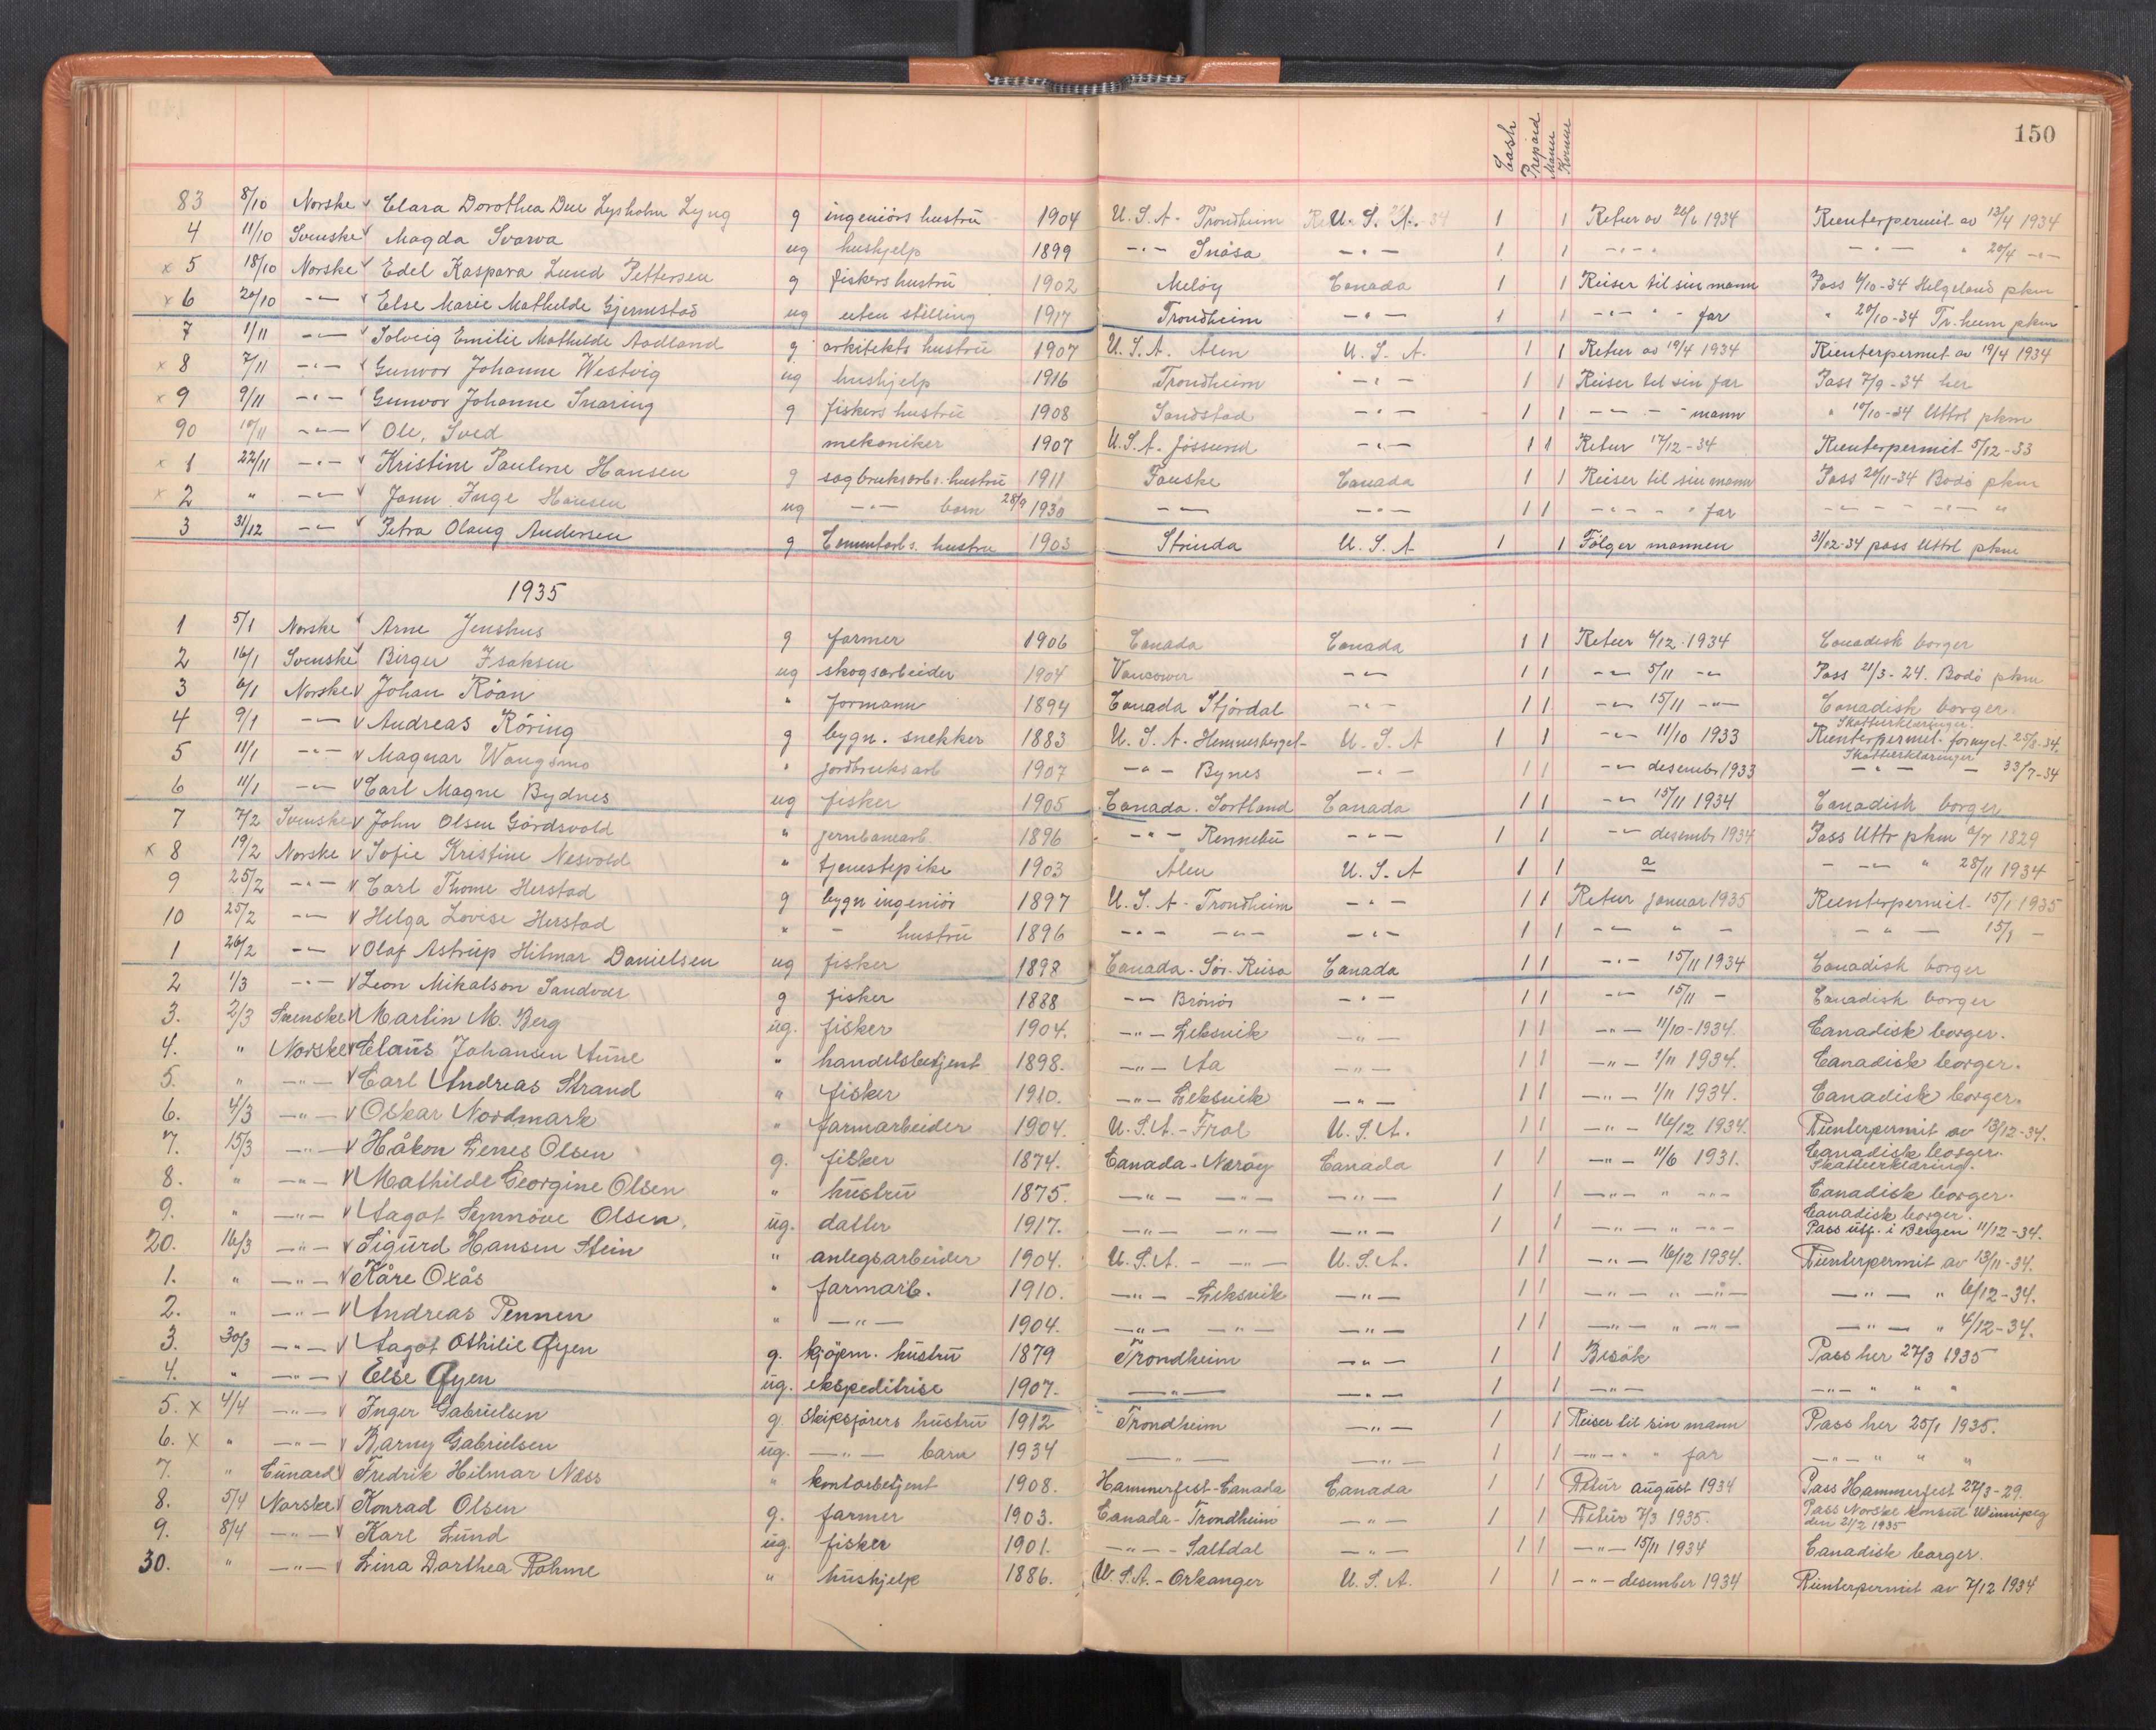 150
Cash Prepaid Mann Kvinne
83 8/10 Norske v Clara Dorothea Due Lysholm Lyng g ingeniörs hustrü 1904 U.S.A. Trondheim U.S.A. 1 1 Retur av 26/6 1934 Rienterpermit av 13/4 1934
4 11/10 Svenske v Magda Svarva ug hushjelp 1899 -"- Snåsa -"- 1 1 -"- " 20/4 -"-
x 5 18/10 Norske v Edel Kaspara Lund Pettersen g fiskers hustrü 1902 Melöy Canada 1 1 Reiser til sin mann Pass 6/10-34 Helgeland pkm
x 6 20/10 -"- v Else Marie Mathilde Gjermstad ug uten stilling 1917 Trondheim -"- 1 1 -"- - far " 20/10-34 Tr.heim pkm
7 1/11 -"- Solveig Emilie Mathilde Aadland g arkitekts hustrü 1907 U.S.A. Ålen U.S.A. 1 1 Retur av 19/4 1934 Rienterpermit av 19/4 1934
x 8 7/11 -"- v Gunvor Johanne Westvig ug hushjelp 1916 Trondheim -"- 1 1 Reiser til sin far Pass 7/9-34 her
x 9 9/11 -"- v Gunvor Johanne Snaring g fiskers hustrü 1908 Sandstad -"- 1 1 -"- - mann " 10/10-34 Uttrl pkm
90 10/11 -"- v Ole, Sved mekaniker 1907 U.S.A. Jössund -"- 1 1 Retur 17/12-34 Rienterpermit 5/12-33
x 1 22/11 -"- v Kristine Pauline Hansen g sagbruksarb.s. hustrü 1911 Fauske Canada 1 1 Reiser til sin mann Pass 20/11-34 Bodö pkm
x 2 " -"- v Jann Inge Hansen ug -"- barn 28/9 1930 -"- -"- 1 1 -"- - " far -"- - -"- "
3 31/12 -"- v Petra Olaug Andersen g Cementarb s. hustru 1903 Strinda U.S.A 1 1 Fölger mannen 31/12-34 pass Uttrl pkm
1935
1 5/1 Norske v Arne Jenshus g farmer 1906 Canada Canada 1 1 Retur 6/12.1934 Canadisk borger
2 16/1 Svenske v Birger Isaksen ug skogsarbeider 1904 Vancower -"- 1 1 -"- 5/11 -"- Pass 21/3-24. Bodö pkm
3 6/1 Norske v Johan Röan " formann 1894 Canada Stjördal -"- 1 1 -"- 15/11 -"- Canadisk borger
4 9/1 -"- v Andreas Röring g bygn. snekker 1883 U.S.A. Hemnesberget- U.S.A 1 1 -"- 11/10 1933 Skatteerklæringer. Rienterpermit fornyet 25/8-34.
5 11/1 -"- v Magnar Wangsmo " jordbruksarb 1907 -"- Bynes -"- 1 1 -"- desembr 1933 Skatteerklæringer -"- - 33/7-34
6 11/1 -"- v Carl Magne Bydnes ug fisker 1905 Canada. Sortland Canada 1 1 -"- 15/11 1934 Canadisk borger
7 7/2 Svenske v John Olsen Gårdsvold " jernbanearb. 1896 -"- Rennebü -"- 1 1 -"- desembr 1934 Pass Uttr pkm 6/7 1829
x 8 19/2 Norske v Sofie Kristine Nesvold " tjenestepike 1903 Ålen U.S.A 1 1 a - -"- " 28/11 1934
9 25/2 -"- v Carl Thome Herstad g bygn ingeniör 1897 U.S.A - Trondheim -"- 1 1 Retur januar 1935 Rienterpermit 15/1 1935
10 25/2 -"- v Helga Lovise Herstad " - hustrü 1896 -"- -"- -"- 1 1 -"- " - -"- 15/1 -
1 26/2 -"- v Olaf Astrüp Hilmar Danielsen ug fisker 1898 Canada - Sör-Reisa Canada 1 1 -"- 15/11 1934 Canadisk borger
2 1/3 -"- v Leon Mikalson Sandvær g fisker 1888 -"- Brönös -"- 1 1 -"- 15/11 - Canadisk borger
3. 2/3 Svenske v Martin M. Berg üg. fisker 1904. -"- Leksvik -"- 1 1 -"- 11/10-1934. Canadisk borger.
4. " Norske v Claüs Johansen Aüne " handelsbetjent 1898. -"- Aa -"- 1 1 -"- 1/11 1934. Canadisk borger.
5. " -"- v Carl Andreas Strand " fisker 1910. -"- Leksvik -"- 1 1 -"- 1/11 1934. Canadisk borger.
6. 4/3 -"- v Oskar Nordmark " farmarbeider 1904. U.S.A. - Frol U.S.A. 1 1 -"- 16/12 1934. Rienterpermit av 13/12-34.
7. 15/3 -"- v Håkon Zenes Olsen g. fisker 1874. Canada - Næröy Canada 1 1 -"- 11/6 1931. Canadisk borger. Skatteerklæring.
8. " -"- v Mathilde Georgine Olsen " hüstrü 1875. -"- -"- -"- 1 1 -"- " -"- Canadisk borger.
9. " -"- v Aagot Synnöve Olsen, üg. datter 1917. -"- -"- -"- 1 1 -"- " -"- Canadisk borger. Pass ütf. i Bergen 11/12-34.
20. 16/3 -"- v Sigürd Hansen Stein " anlegsarbeider 1904. U.S.A. - -"- U.S.A. 1 1 -"- 16/12 1934. Rienterpermit av 13/11-34.
1. " -"- v Kåre Oxås " farmarb. 1910. -"- - Leksvik -"- 1 1 -"- " -"- -"- " 6/12-34.
2. " -"- v Andreas Pennen " -"- 1904. -"- -"- -"- 1 1 -"- " -"- -"- " 4/12-34.
3. 30/3 -"- v Aagot Othilie Øyen g. kjöpm. hüstrü 1879 Trondheim -"- 1 1 Besök Pass her 27/3 1935
4. " -"- v Else Øyen üg. ekspeditrise 1907. -"- -"- 1 1 -"- -"- " " "
5. x 4/4 -"- v Inger Gabrielsen g. skipsförers hüstrü 1912 Trondheim -"- 1 1 Reiser til sin mann Pass her 25/1 1935.
6. x " -"- v Barny Gabrielsen üg. -"- barn 1934 -"- -"- 1 1 -"- " " far -"- " " "
7. " Cünard v Fredrik Hilmar Næss " kontorbetjent 1908. Hammerfest-Canada Canada 1 1 Retür aügüst 1934 Pass Hammerfest 27/3-29.
8. 5/4 Norske v Konrad Olsen g. farmer 1903. Canada - Trondheim -"- 1 1 Retür 7/3 1935. Pass Norske konsül Winnipeg den 21/2 1935
9. 8/4 -"- v Karl Lünd üg. fisker 1901. -"- - Saltdal -"- 1 1 -"- 15/11 1934 Canadisk borger.
30. " -"- v Lina Dorthea Rohme " hüshjelp 1886. U.S.A. - Orkanger U.S.A. 1 1 -"- desember 1934 Rienterpermit av 7/12 1934